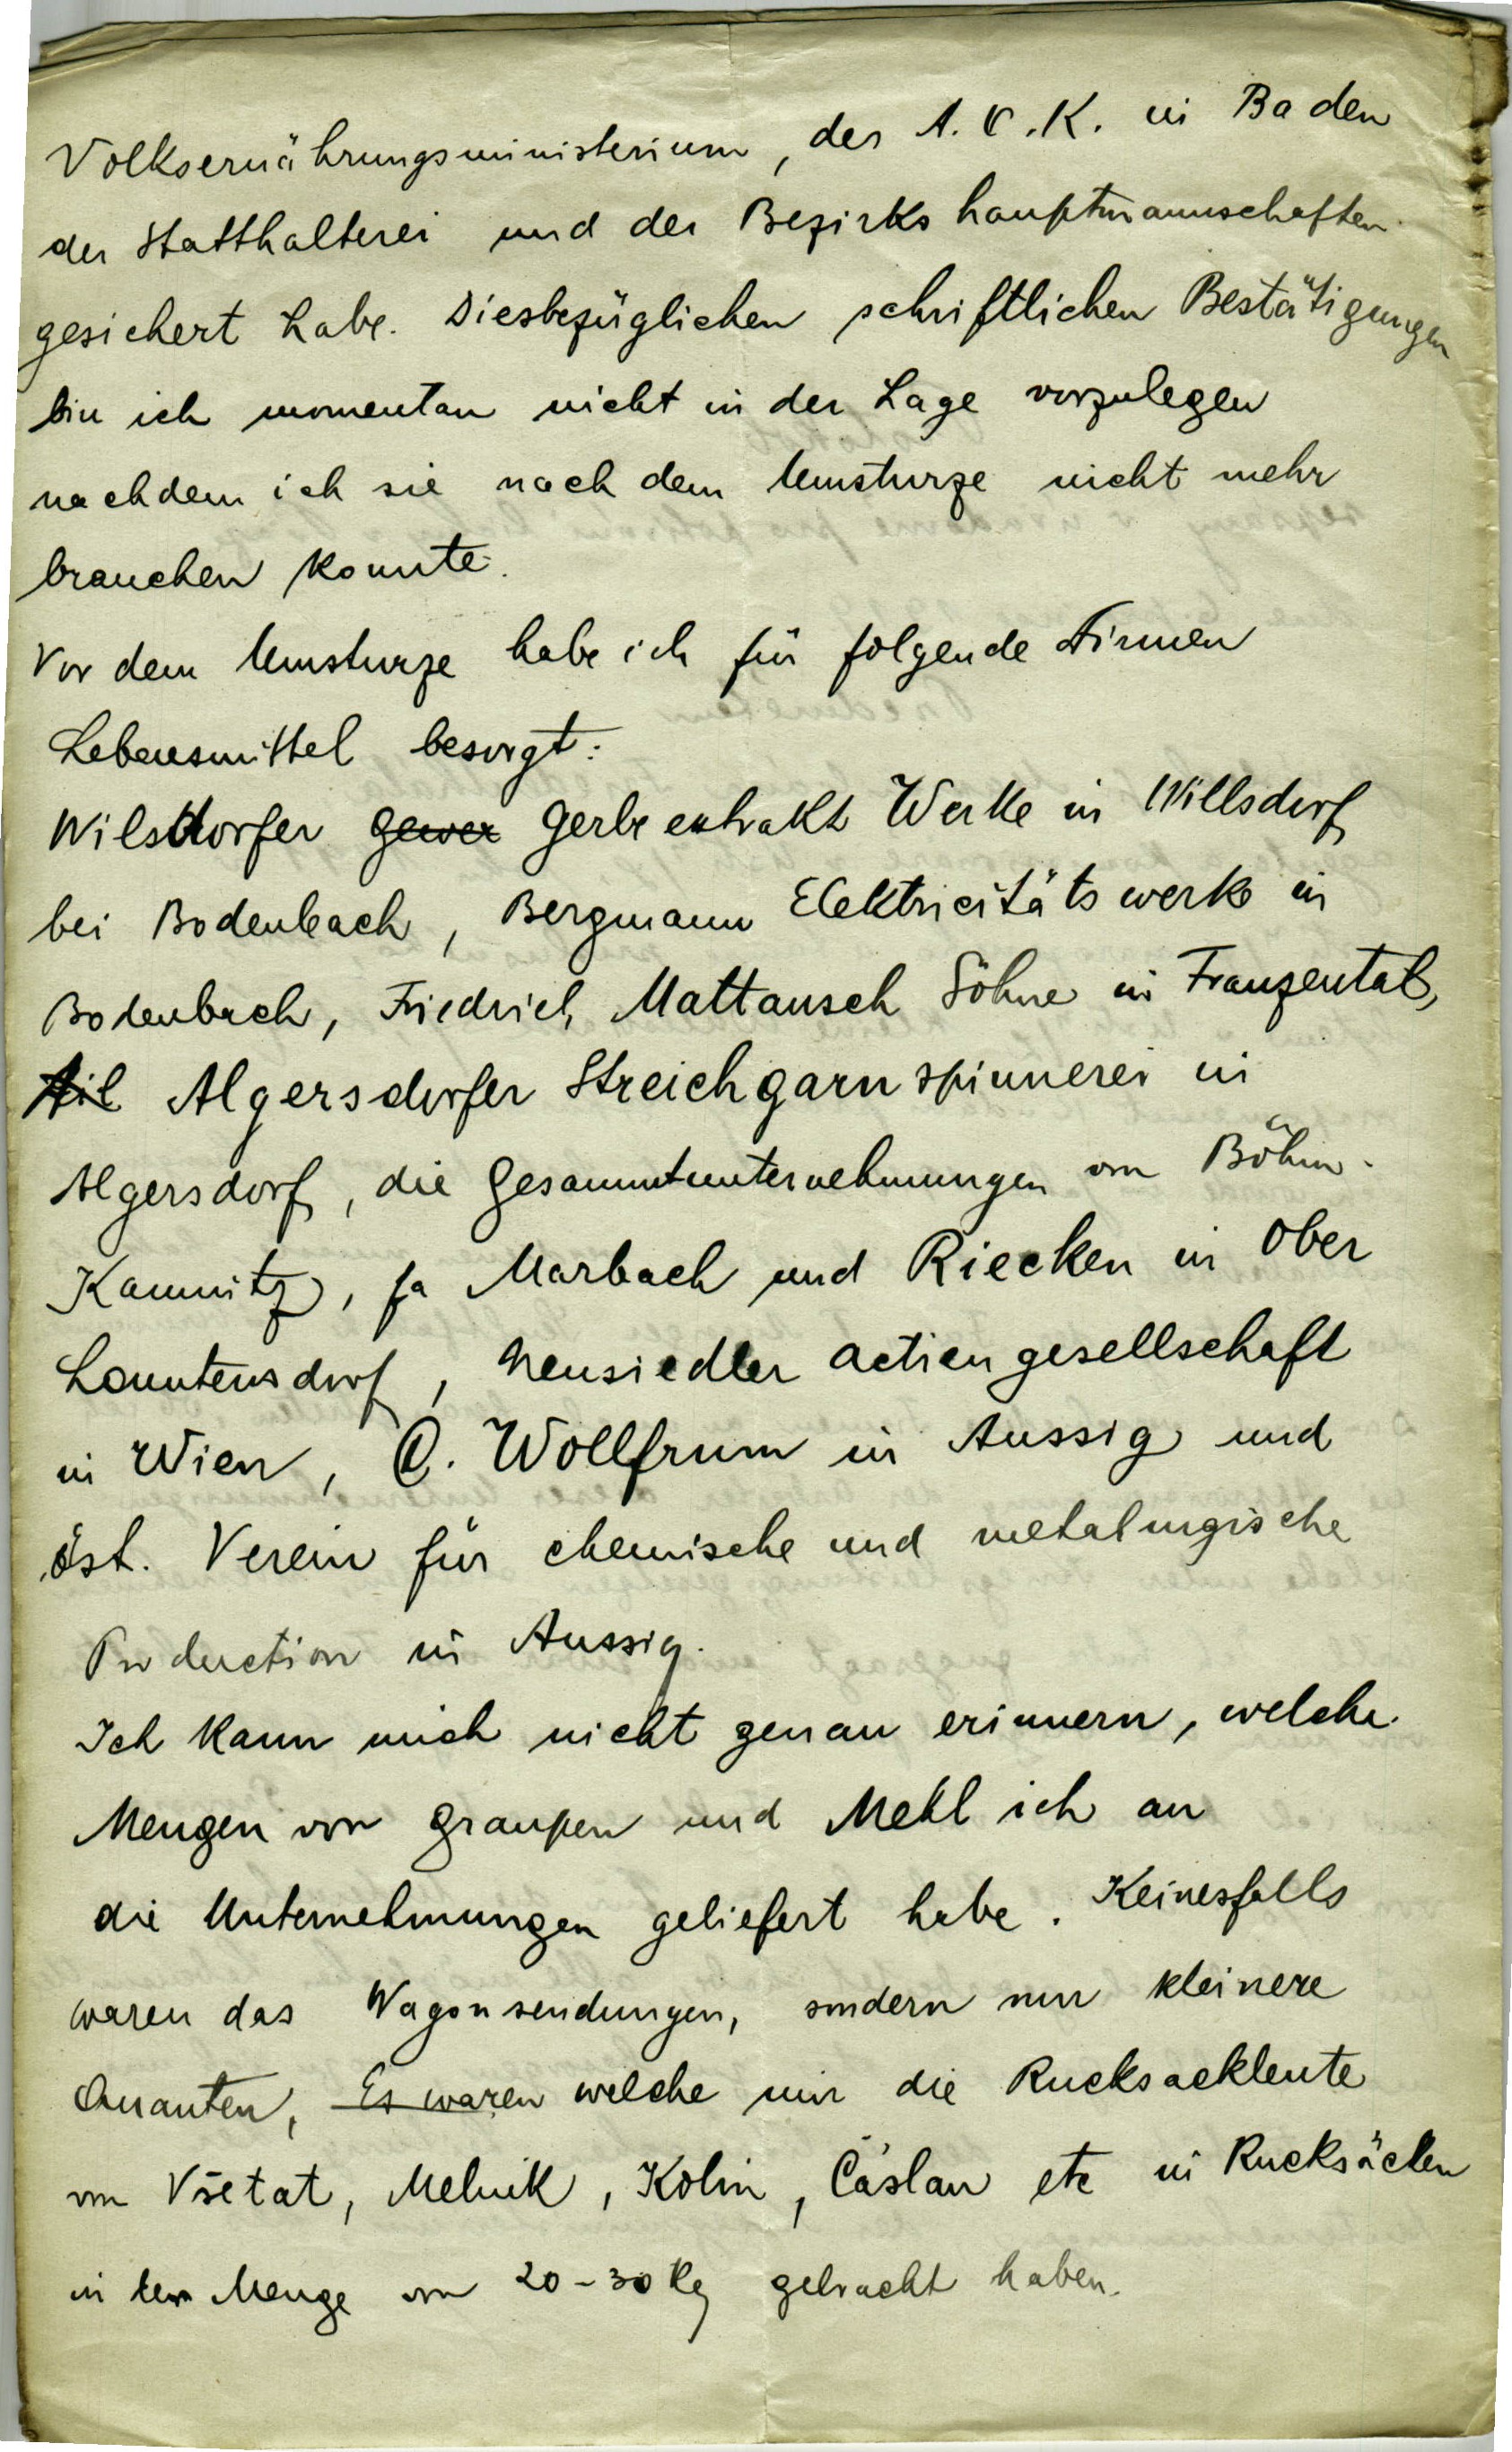 Volksernährungsministerium, der A. O. K. in Baden
der Statthalterei und der Bezirkshauptmannschaften
gesichert habe. Diesbezüglichen schriftlichen Bestätigungen
bin ich momentan nicht in der Lage vorzulegen
nachdem ich sie nach dem Umsturze nicht mehr
brauchen konnte.
Vor dem Umsturze habe ich für folgende Firmen
Lebensmittel besorgt:
Wilsdorfer Gewer Gerbeextrakt Werke in Willsdorf
bei Bodenbach, Bergmann Elektricitätswerke in
Bodenbach, Friedrich Mattausch Söhne in Franzental,
Algersdorfer Streichgarnspinnerei in
Algersdorf, die Gesammtunternehmungen von Böhm.
Kamnitz, fa Marbach und Riecken in Ober
, Neusiedler Actiengesellschaft
in Wien, C. Wollfrum in Aussig und
öst. Verein für chemische und metalurgische
Production in Aussig.
Ich kann mich nicht genau erinnern, welche
Mengen von Graupen und Mehl ich an
die Unternehmungen geliefert habe. Keinesfalls
waren das Wagonsendungen, sondern nur kleinere
Quanten, Es waren welche mir die Rucksackleute
von Všetat, Melnik, Kolin, Čáslau etc in Rucksäcken
in der Menge von 20-30 Kg gebracht haben.